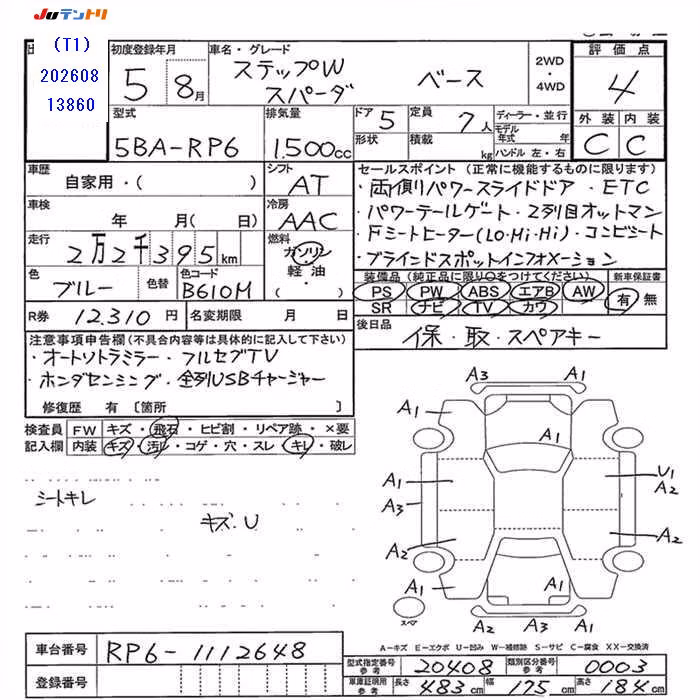 JUテントリ
(T1)
202608
13860
初度登録年月
5 8月
車名・グレード
ステップW ベース
スパーダ
2WD
・
4WD
評価点
4
外装 内装
C C
型式
5BA-RP6
排気量
1.500cc
ドア 5
形状
定員 7人
積載 kg
ディーラー・並行
モデル年式 年
ハンドル 左・右
車歴
自家用・( )
シフト
AT
車検
年 月( 日)
冷房
AAC
走行
2万2千395km
燃料
ガソリン
軽油
( )
色
ブルー
色替
色コード
B610M
R券 12.310円
名変期限 月 日
セールスポイント(正常に機能するものに限ります)
・両側パワースライドドア・ETC
・パワーテールゲート・2列目オットマン
・Fシートヒーター(LO・Hi・Hi)・コンビシート
・ブラインドスポットインフォメーション
装備品(純正品に限り○をつけてください)
PS PW ABS エアB AW
SR ナビ TV カワ
新車保証書
有・無
後日品
保・取・スペアキー
注意事項申告欄(不具合内容等は具体的に記入して下さい)
・オートソトラミラー・フルセグTV
・ホンダセンシング・全列USBチャージャー
修復歴 有 〔箇所 〕
検査員
記入欄
FW キズ・飛石・ヒビ割・リペア跡・×要
内装 キズ・汚レ・コゲ・穴・スレ・キレ・破レ
シートキレ
キズ・U
A3 A1
A1 A1
A1
A1 U1
A3 A2
A2 A2
A1 A1 A1
A2 A3 A1
スペア
A-キズ E-エクボ U-凹み W-補修跡 S-サビ C-腐食 XX-交換済
車台番号 RP6-1112648
登録番号
型式指定番号 参考 20408
類別区分番号 参考 0003
車庫証明用 参考 長さ 483cm 幅 175cm 高さ 184cm